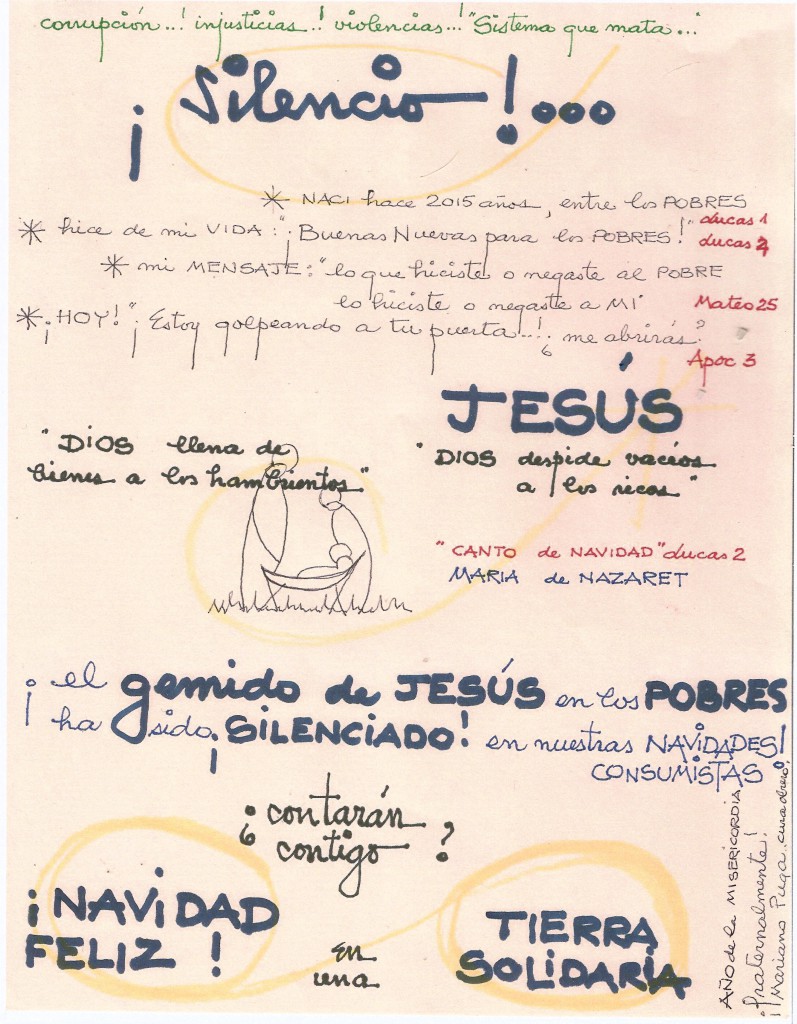 corrupción..! injusticias..! violencias..! "Sistema que mata...
¡ Silencio !...
* NACI hace 2015 años, entre los POBRES
* hice de mi VIDA: "¡ Buenas Nuevas para los POBRES! " Lucas 1
Lucas 4
* mi MENSAJE: "lo que hiciste o negaste al POBRE
lo hiciste o negaste a MI Mateo 25
* ¡HOY! "¡ Estoy golpeando a tu puerta...! ¿ me abrirás?
Apoc 3
JESÚS
"DIOS llena de
bienes a los hambrientos"
"DIOS despide vacíos
a los ricos"
"CANTO de NAVIDAD" Lucas 2
MARIA de NAZARET
¡ el gemido de JESÚS en los POBRES
ha sido ¡SILENCIADO! en nuestras NAVIDADES!
CONSUMISTAS
¿ contarán
contigo ?
¡ NAVIDAD
FELIZ !
en
una
TIERRA
SOLIDARIA
AÑO de la MISERICORDIA
¡fraternalmente!
¡Mariano Puga, cura obrero!